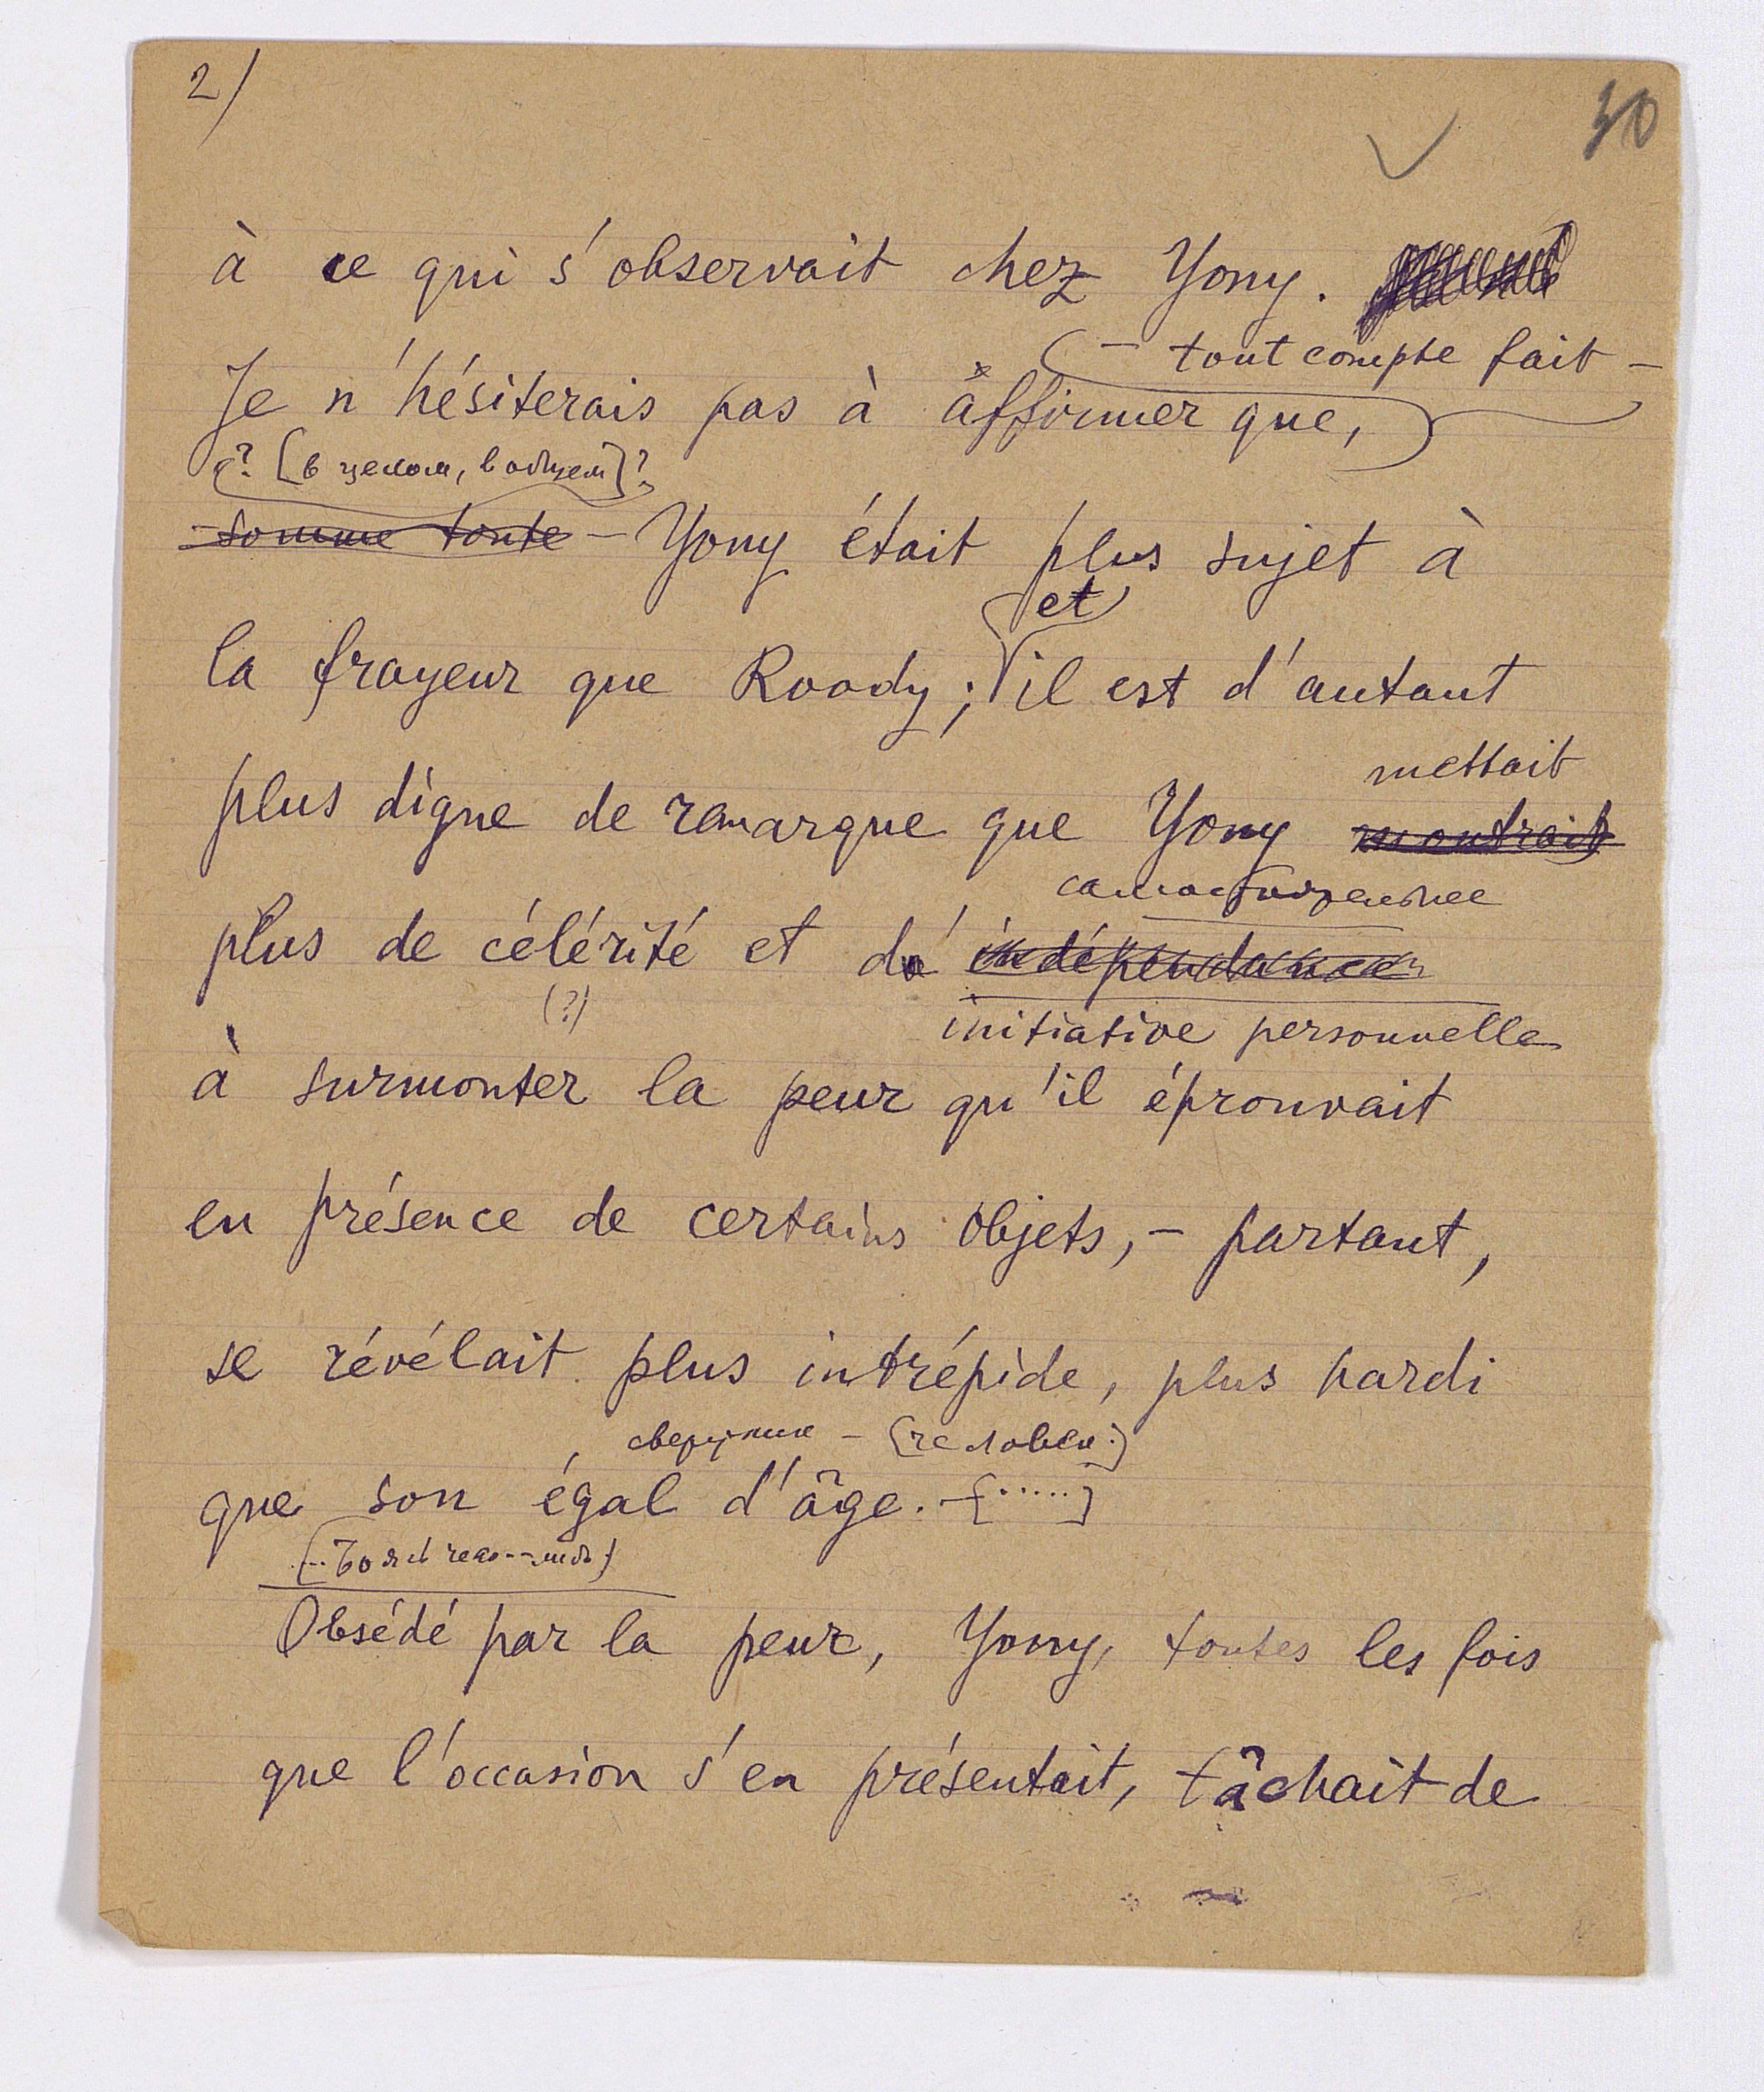 2/
30
à ce qui s'observait chez Yony.
— tout compte fait —
Je n'hésiterais pas à affirmer que,
? [в целом, в общем] ?
- somme toute — Yony était plus sujet à
et
la frayeur que Roody; il est d'autant
mettait
plus digne de remarque que Yony montrait
plus de célérité et d' indépendance
(?)
initiative personnelle
à surmonter la peur qu'il éprouvait
en présence de certains objets, — partant,
se révélait plus intrépide, plus hardi
сверстник — [человек.]
que son égal d'âge. — [.....]
Obsédé par la peur, Yony, toutes les fois
que l'occasion s'en présentait, tâchait de